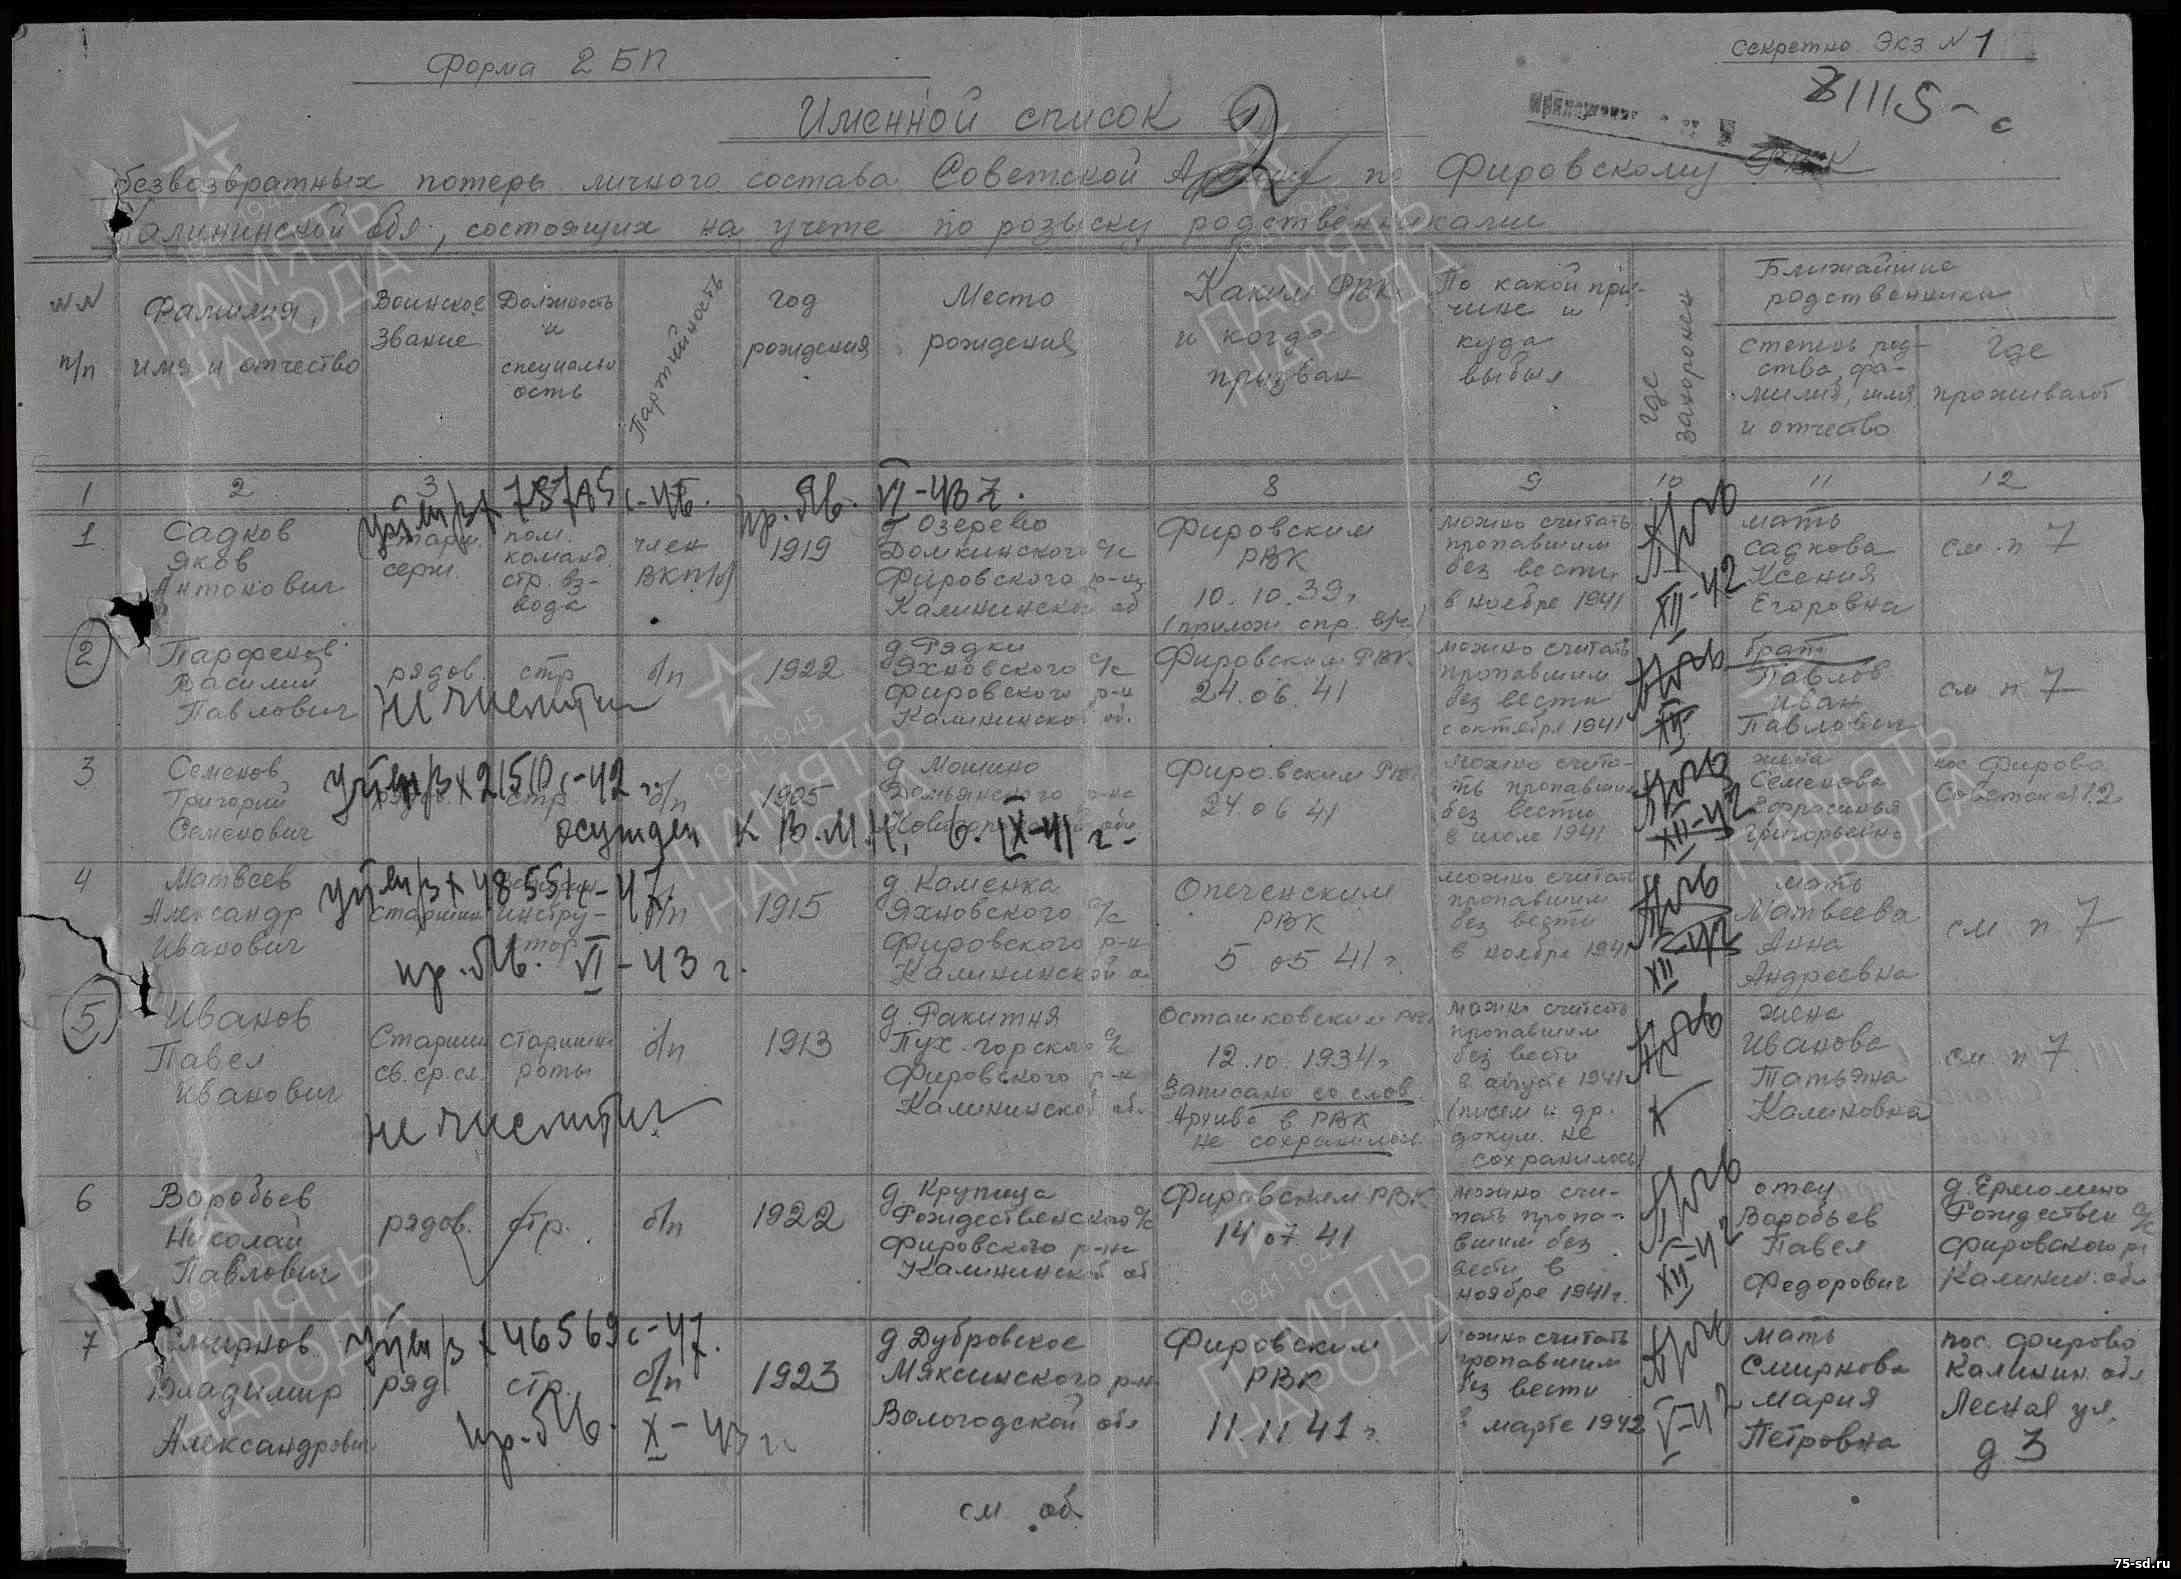 Форма 2 БП
Секретно Экз N 1
31115-с
Именной список
2
безвозвратных потерь личного состава Советской Армии по Фировскому РВК
Калининской обл., состоящих на учете по розыску родственниками
NN п/п
Фамилия, имя и отчество
Воинское звание
Должность и специальность
Партийность
год рождения
Место рождения
Каким РВК и когда призван
По какой причине и куда выбыл
где захоронен
Ближайшие родственники
степень родства, фамилия, имя и отчество
где проживают
1 2 3 8 9 10 11 12
учтен вх 78785 с-46. пр. без в. VI-43 г.
1
Садков Яков Антонович
Старш. серж.
пом. команд. стр. взвода
член ВКП(б)
1919
д Озерево Домкинского с/с Фировского р-на Калининской об
Фировским РВК 10.10.39 г (прилож. спр. в/ч)
можно считать пропавшим без вести в ноябре 1941
XII-42
мать Садкова Ксения Егоровна
см. п 7
2
Парфенов Василий Павлович
рядов.
стр
б/п
1922
д Рядки Яхновского с/с Фировского р-н Калининской об.
Фировским РВК 24.06.41
можно считать пропавшим без вести с октября 1941
XII
брат Павлов Иван Павлович
см п 7
не числится
3
Семенов Григорий Семенович
учтен вх 21510 с-42 г.
стр
б/п
1905
д Мошино
Фировским РВК 24.06.41
можно считать пропавшим без вести в июле 1941
XII-42
жена Семенова Григорьевна
пос Фирово Советская 12
осужден к В.М.Н. в IX-41 г-
4
Матвеев Александр Иванович
учтен вх 48551 с-47.
старшина
инструктор
б/п
1915
д Каменка Яхновского с/с Фировского р-н Калининской о.
Опеченским РВК 5.05 41 г.
можно считать пропавшим без вести в ноябре 1941
XII-42
мать Матвеева Анна Андреевна
см п. 7
пр. без в. VI-43 г.
5
Иванов Павел Иванович
Старшин св.ср.сл.
старшина роты
б/п
1913
д. Ракитня Пух-горского с/с Фировского р-н Калининской об.
Осташковским РВК 12.10.1934 г Записано со слов. Архива в РВК не сохранилось
можно считать пропавшим без вести в августе 1941 (писем и др. докум. не сохранилось)
жена Иванова Татьяна Калиновна
см. п 7
не числится
6
Воробьев Николай Павлович
рядов.
стр.
б/п
1922
д Крутица Рождественского с/с Фировского р-на Калининской об
Фировским РВК 14 07 41
можно считать пропавшим без вести в ноябре 1941 г.
XII-42
отец Воробьев Павел Федорович
д. Ермолино Рождествен с/с Фировского р Калинин. обл
7
Смирнов Владимир Александрович
учтен вх 46569 с-47.
ряд
стр.
б/п
1923
д Дубровское Мяксинского р-н Вологодской обл
Фировским РВК 11.11.41 г.
можно считать пропавшим без вести в марте 1942
V-42
мать Смирнова Мария Петровна
пос. Фирово Калинин. обл Лесная ул. д 3
пр. без в. X-43 г.
см. об
1941-1945
ПАМЯТЬ НАРОДА
75-sd.ru